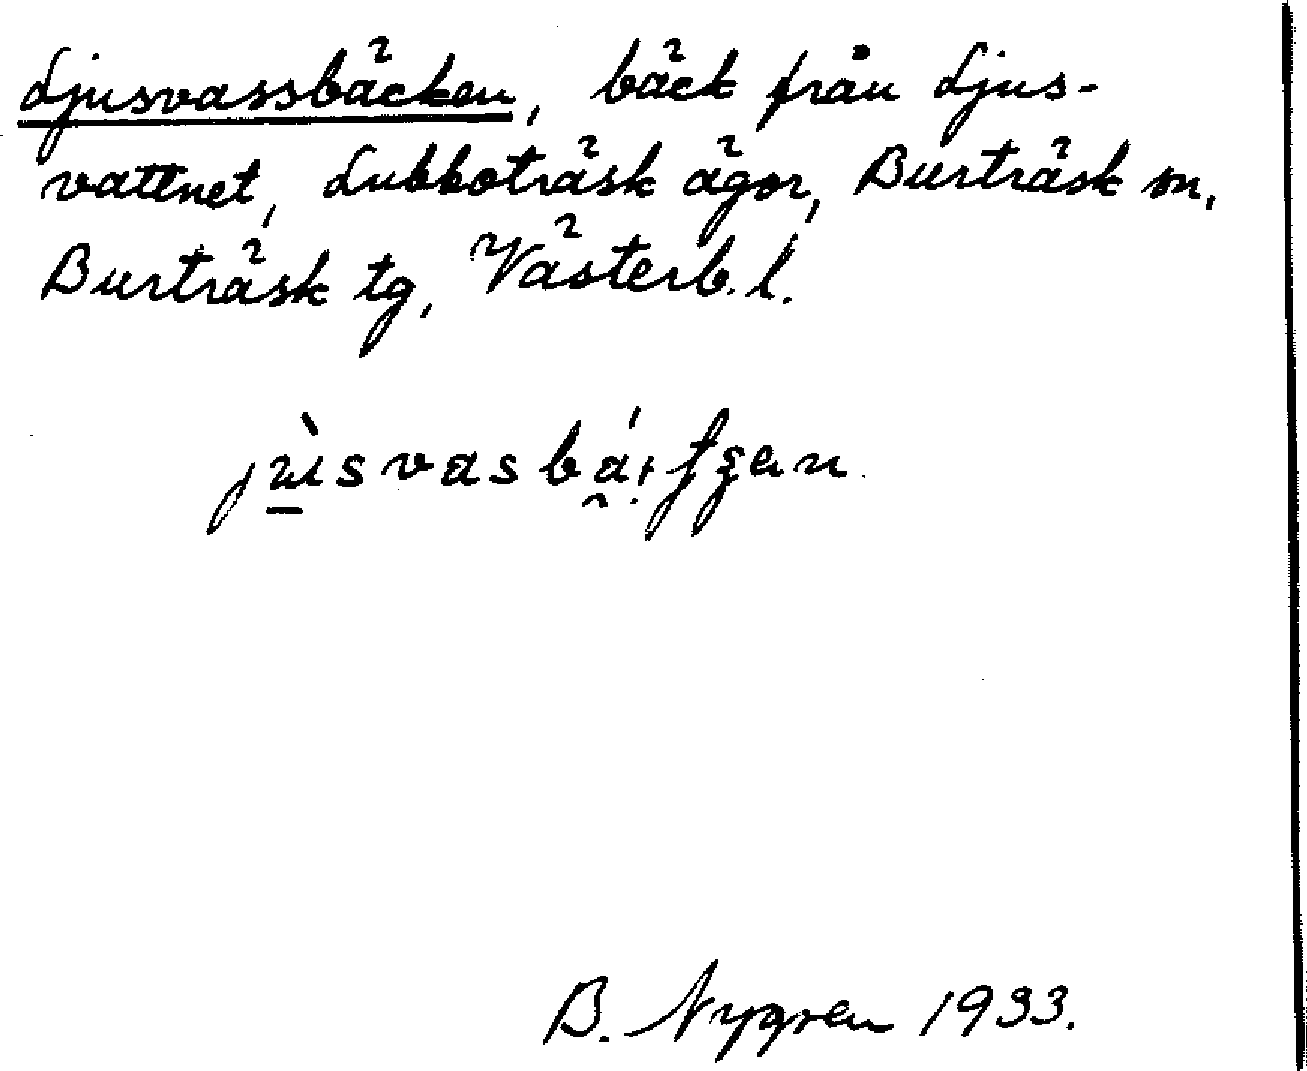 Ljusvassbäcken, bäck från Ljus-
vattnet, Lubboträsk ägor, Burträsk sn,
Burträsk tg, Västerb. l.
B. Nygren 1933.